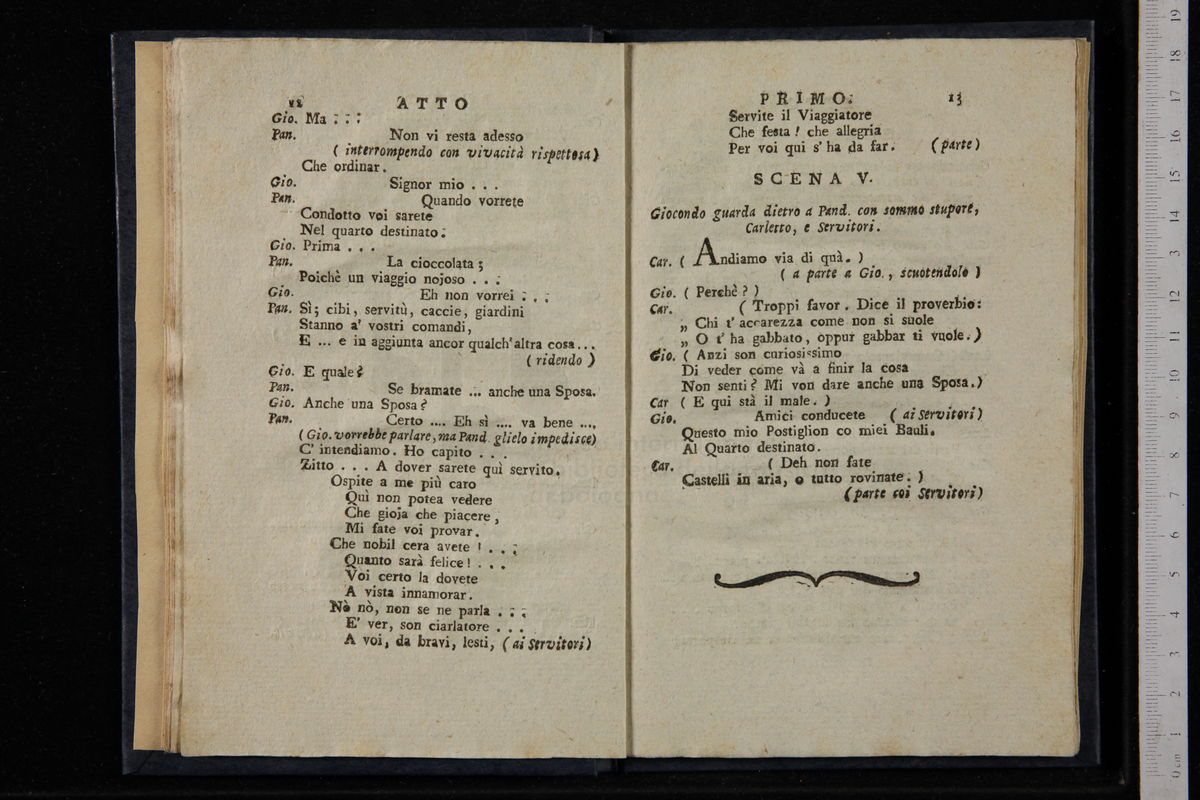 12 ATTO
Gio. Ma . . .
Pan. Non vi resta adesso
( interrompendo con vivacità rispettosa )
Che ordinar.
Gio. Signor mio . . .
Pan. Quando vorrete
Condotto voi sarete
Nel quarto destinato.
Gio. Prima . . .
Pan. La cioccolata ;
Poichè un viaggio nojoso . . .
Gio. Eh non vorrei . . .
Pan. Sì; cibi, servitù, caccie, giardini
Stanno a' vostri comandi,
E ... e in aggiunta ancor qualch' altra cosa...
( ridendo )
Gio. E quale?
Pan. Se bramate ... anche una Sposa.
Gio. Anche una Sposa?
Pan. Certo .... Eh sì .... va bene ....
( Gio. vorrebbe parlare, ma Pand. glielo impedisce)
C' intendiamo. Ho capito . . .
Zitto . . . A dover sarete quì servito.
Ospite a me più caro
Quì non potea vedere
Che gioja che piacere,
Mi fate voi provar.
Che nobil cera avete ! . . .
Quanto sarà felice! . . .
Voi certo la dovete
A vista innamorar.
Nò nò, non se ne parla . . .
E' ver, son ciarlatore . . .
A voi, da bravi, lesti, ( ai Servitori)
PRIMO. 13
Servite il Viaggiatore
Che festa ! che allegria
Per voi qui s' ha da far. (parte)
SCENA V.
Giocondo guarda dietro a Pand. con sommo stupore,
Carletto, e Servitori.
Car. ( Andiamo via di quà. )
( a parte a Gio., scuotendolo )
Gio. ( Perchè ? )
Car. ( Troppi favor. Dice il proverbio:
„ Chi t' accarezza come non si suole
„ O t' ha gabbato, oppur gabbar ti vuole.)
Gio. ( Anzi son curiosissimo
Di veder come và a finir la cosa
Non senti? Mi von dare anche una Sposa.)
Car ( E qui stà il male. )
Gio. Amici conducete ( ai Servitori)
Questo mio Postiglion co miei Bauli.
Al Quarto destinato.
Car. ( Deh non fate
Castelli in aria, o tutto rovinate. )
(parte coi Servitori)
0 cm 1 2 3 4 5 6 7 8 9 10 11 12 13 14 15 16 17 18 19